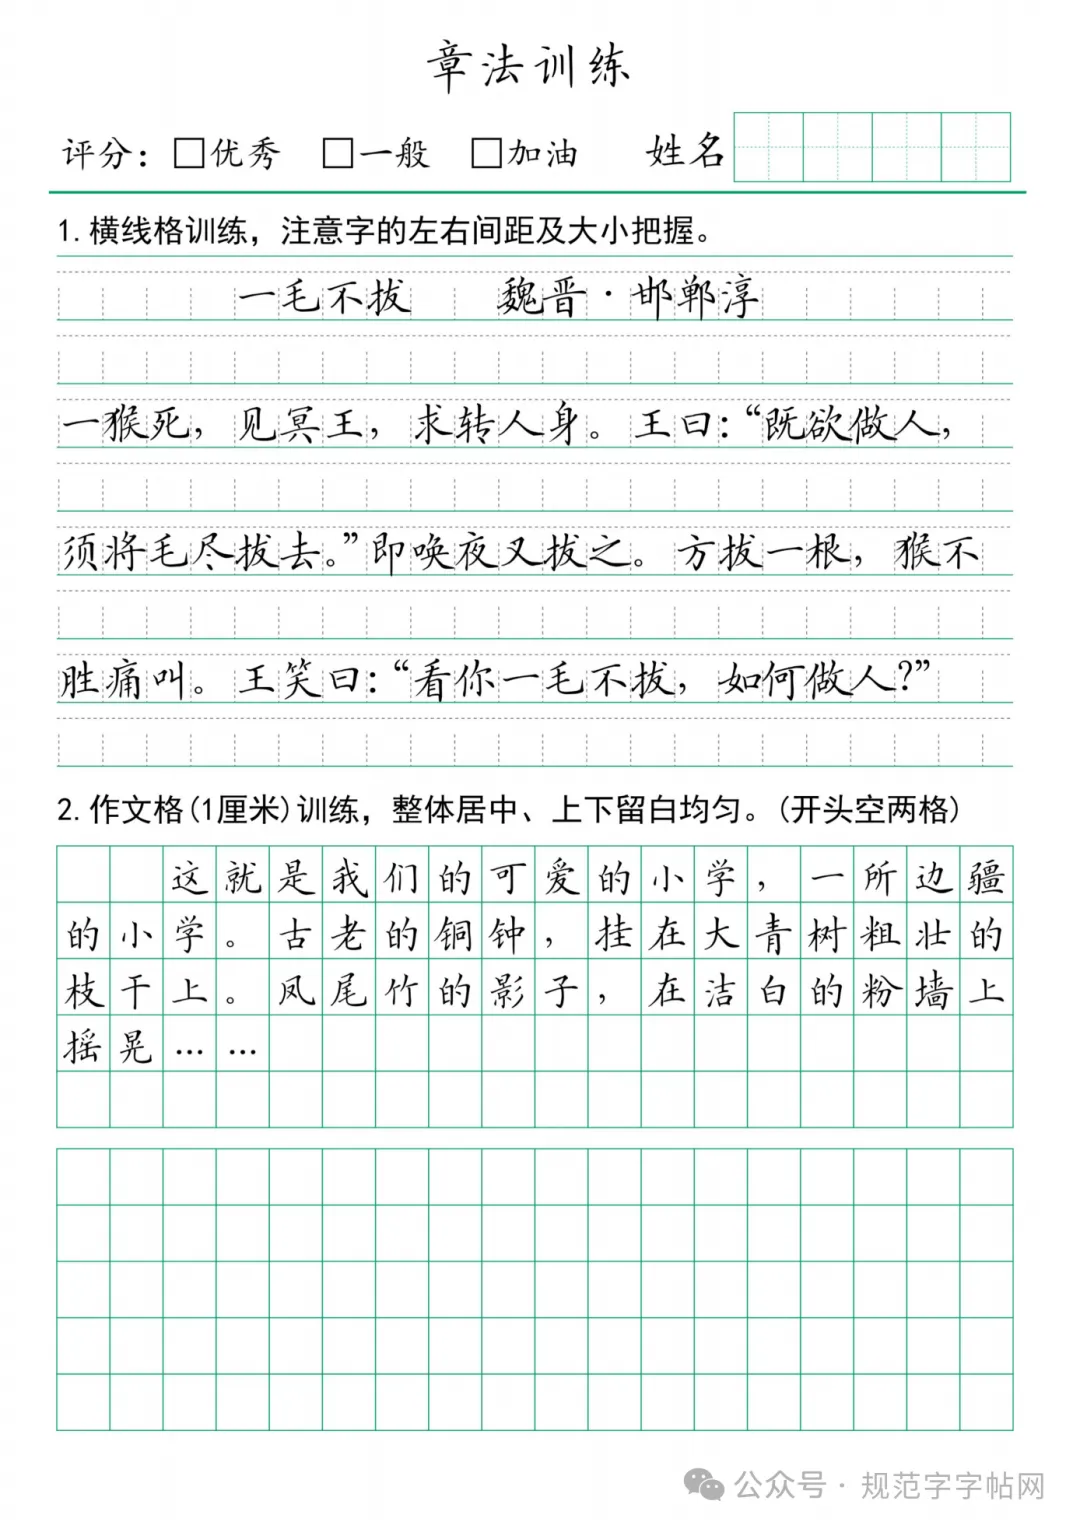 章法训练
评分：□优秀 □一般 □加油 姓名
1.横线格训练，注意字的左右间距及大小把握。
一毛不拔 魏晋·邯郸淳
一猴死，见冥王，求转人身。王曰：“既欲做人，
须将毛尽拔去。”即唤夜叉拔之。方拔一根，猴不
胜痛叫。王笑曰：“看你一毛不拔，如何做人？”
2.作文格(1厘米)训练，整体居中、上下留白均匀。(开头空两格)
这就是我们的可爱的小学，一所边疆
的小学。古老的铜钟，挂在大青树粗壮的
枝干上。凤尾竹的影子，在洁白的粉墙上
摇晃……
公众号·规范字字帖网